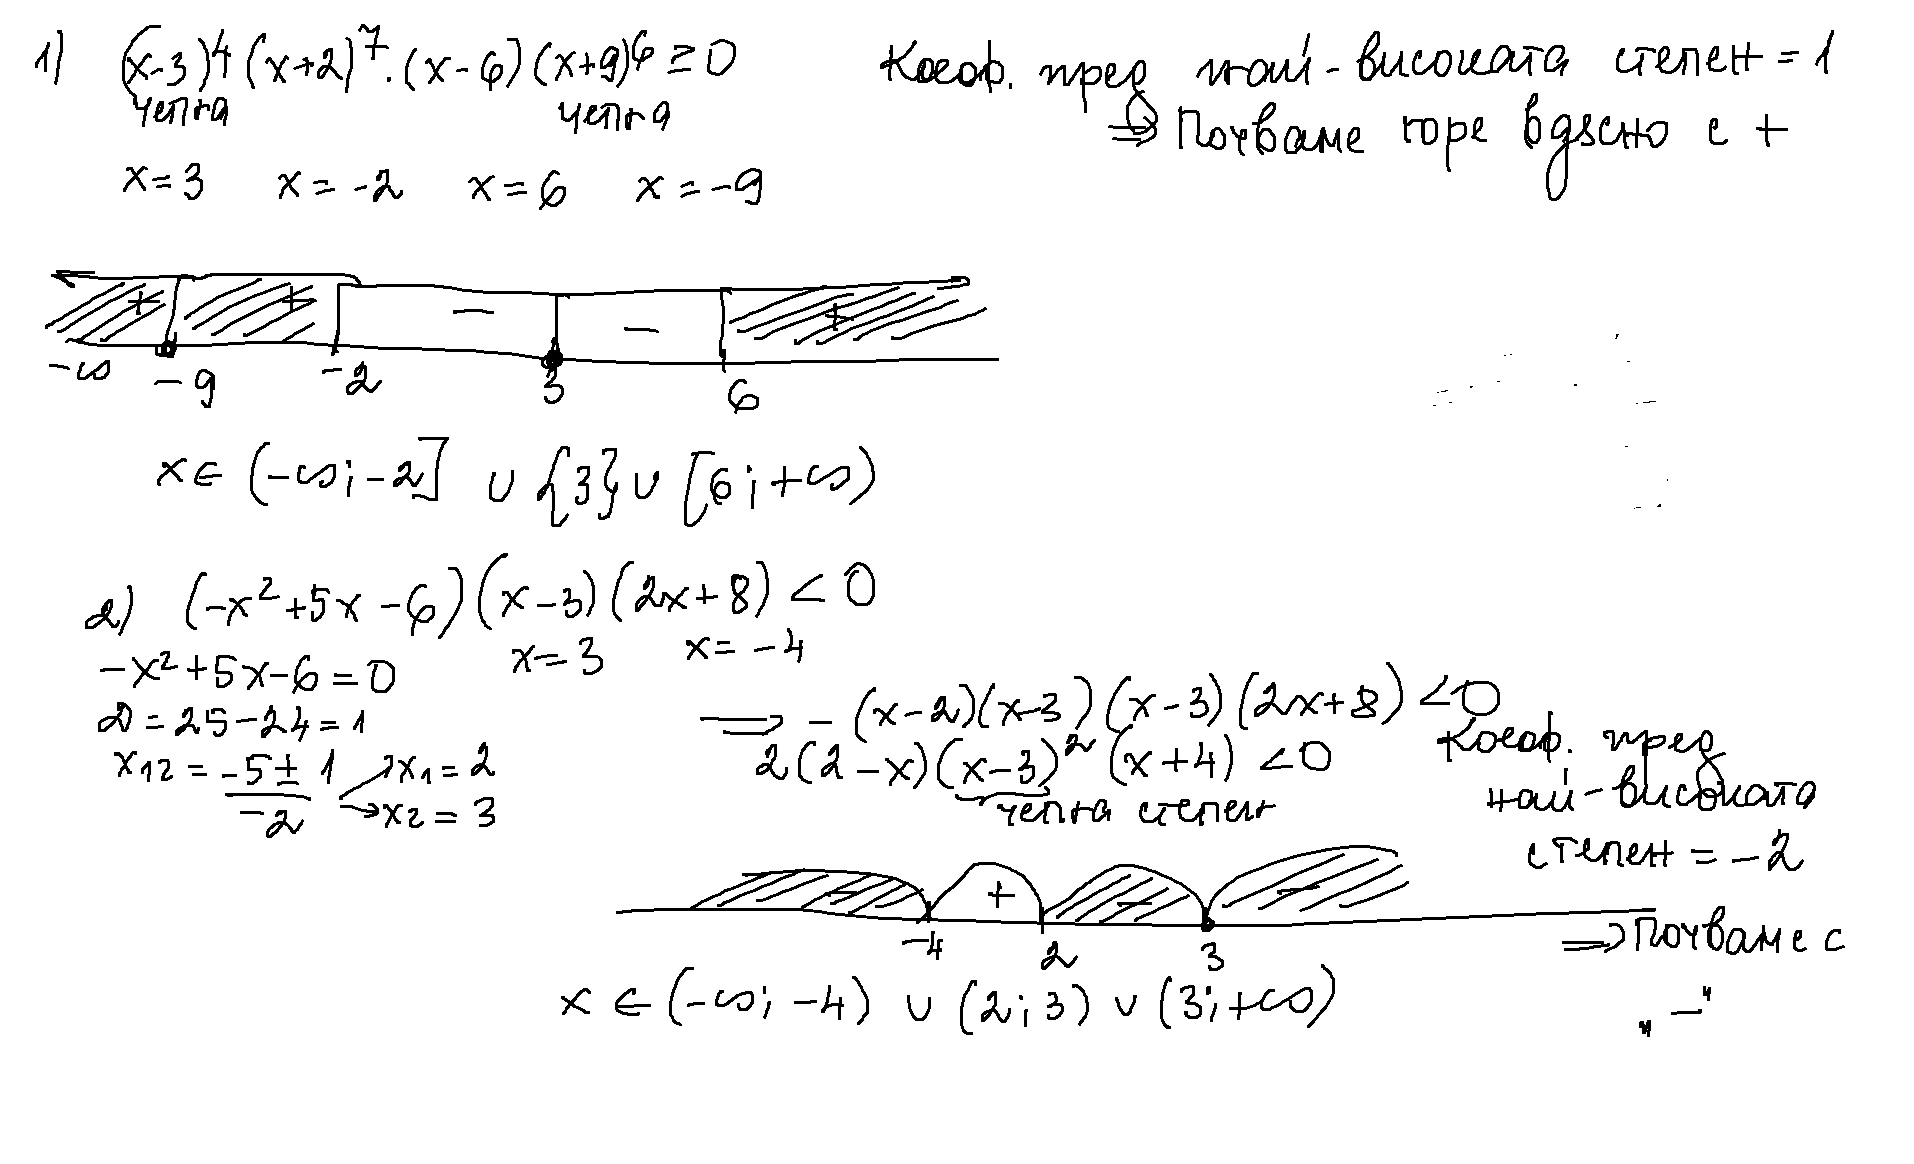 1) (x-3)⁴(x+2)⁷.(x-6)(x+9)⁶≥0 Коеф. пред най-високата степен = 1
четна четна ⇒ Почваме горе вдясно с +
x=3 x=-2 x=6 x=-9
+ + - - +
-∞ -9 -2 3 6
x∈(-∞;-2] ∪ {3} ∪ [6;+∞)
2) (-x²+5x-6)(x-3)(2x+8)<0
x=3 x=-4
-x²+5x-6=0
D=25-24=1
x₁₂ = (-5±1)/(-2) → x₁=2
→ x₂=3
⇒ -(x-2)(x-3)(x-3)(2x+8)<0
2(2-x)(x-3)²(x+4)<0
четна степен
Коеф. пред
най-високата
степен = -2
⇒ Почваме с
„-"
- + - -
-4 2 3
x∈(-∞;-4) ∪ (2;3) ∪ (3;+∞)